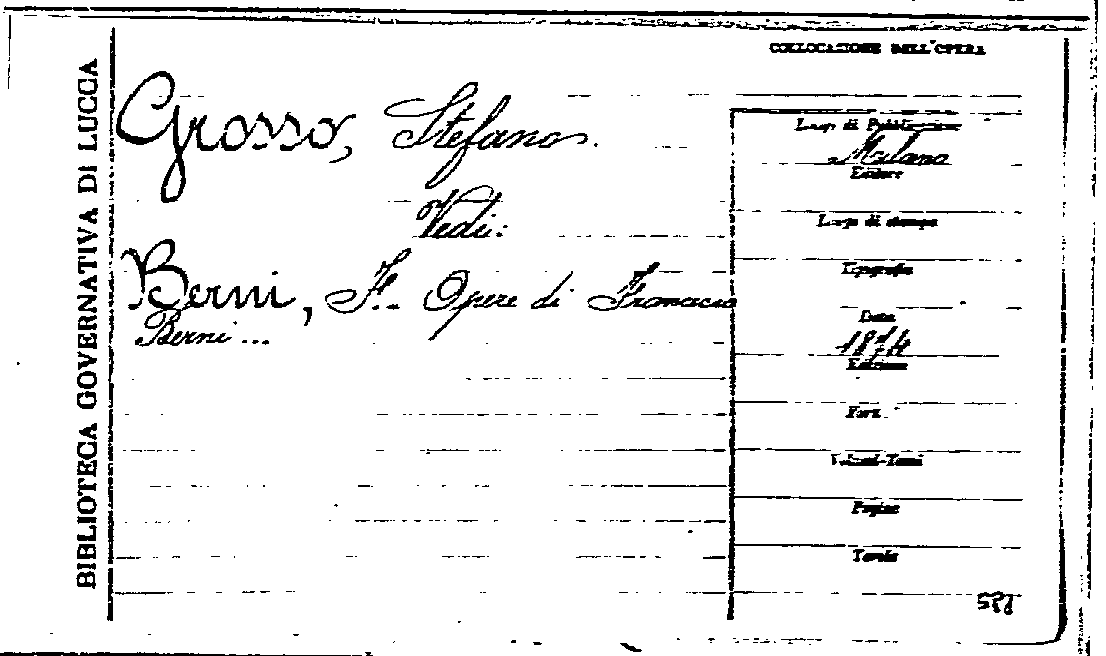 BIBLIOTECA GOVERNATIVA DI LUCCA
Grosso, Stefano.
Vedi:
Berni, F. - Opere di Francesco
Berni ...
COLLOCAZIONE DELL'OPERA
Luogo di Pubblicazione
Milano
Editore
Luogo di stampa
Tipografia
Data
1874
Edizione
Form.
Volumi-Tomi
Pagine
Tavole